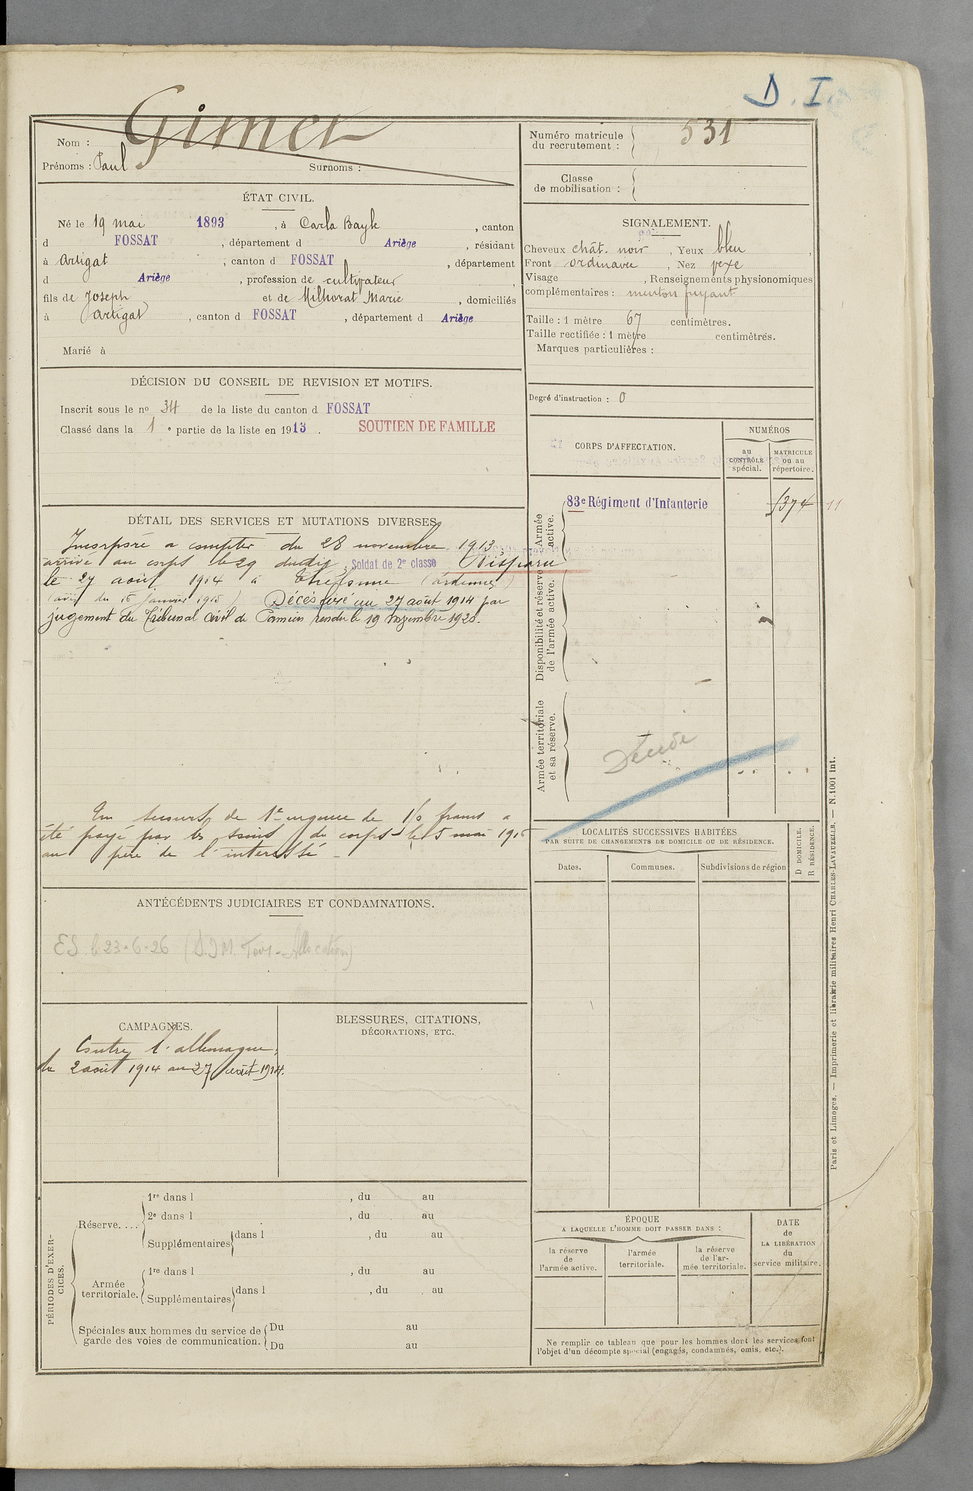 D. I.
Nom : Gimet
Prénoms : Paul Surnoms :
Numéro matricule du recrutement : 531
Classe de mobilisation :
ÉTAT CIVIL.
Né le 19 mai 1893, à Carla Bayle, canton
d FOSSAT, département d Ariège, résidant
à Artigat, canton d FOSSAT, département
d Ariège, profession de cultivateur
fils de Joseph et de Milhorat Marie, domiciliés
à Artigat, canton d FOSSAT, département d Ariège
Marié à
SIGNALEMENT.
Cheveux chât. noir, Yeux bleu,
Front ordinaire, Nez
Visage , Renseignements physionomiques
complémentaires : menton fuyant
Taille : 1 mètre 67 centimètres.
Taille rectifiée : 1 mètre centimètres.
Marques particulières :
Degré d'instruction : 0
DÉCISION DU CONSEIL DE REVISION ET MOTIFS.
Inscrit sous le no 34 de la liste du canton d FOSSAT
Classé dans la 1e partie de la liste en 1913. SOUTIEN DE FAMILLE
CORPS D'AFFECTATION.
NUMÉROS
au CONTRÔLE spécial.
MATRICULE ou au répertoire.
Armée active.
83e Régiment d'Infanterie
Disponibilité et réserve de l'armée active.
Armée territoriale et sa réserve.
Décédé
DÉTAIL DES SERVICES ET MUTATIONS DIVERSES.
Incorporé a compter du 28 novembre 1913,
arrivé au corps le 29 dudit, Soldat de 2e classe Disparu
le 27 août 1914 à Thelonne (ardennes)
(avis du 15 janvier 1915) Décès fixé au 27 août 1914 par
jugement du Tribunal civil de Pamiers rendu le 19 novembre 1920.
Un secours de 1re urgence de 150 francs a
été payé par les soins du corps le 5 mai 1915
au père de l'intéressé
LOCALITÉS SUCCESSIVES HABITÉES
PAR SUITE DE CHANGEMENTS DE DOMICILE OU DE RÉSIDENCE.
Dates. Communes. Subdivisions de région
D DOMICILE. R RÉSIDENCE.
ANTÉCÉDENTS JUDICIAIRES ET CONDAMNATIONS.
ES le 23-6-26
CAMPAGNES.
Contre l'allemagne,
du 2 août 1914 au 27 août 1914.
BLESSURES, CITATIONS,
DÉCORATIONS, ETC.
PÉRIODES D'EXERCICES.
Réserve....
1re dans l , du au
2e dans l , du au
Supplémentaires dans l , du au
Armée territoriale.
1re dans l , du au
Supplémentaires dans l , du au
Spéciales aux hommes du service de garde des voies de communication.
Du au
Du au
ÉPOQUE
A LAQUELLE L'HOMME DOIT PASSER DANS :
la réserve de l'armée active.
l'armée territoriale.
la réserve de l'armée territoriale.
DATE de LA LIBÉRATION du service militaire.
Ne remplir ce tableau que pour les hommes dont les services font
l'objet d'un décompte spécial (engagés, condamnés, omis, etc.).
Paris et Limoges. — Imprimerie et librairie militaires Henri CHARLES-LAVAUZELLE. — N. 1001 int.